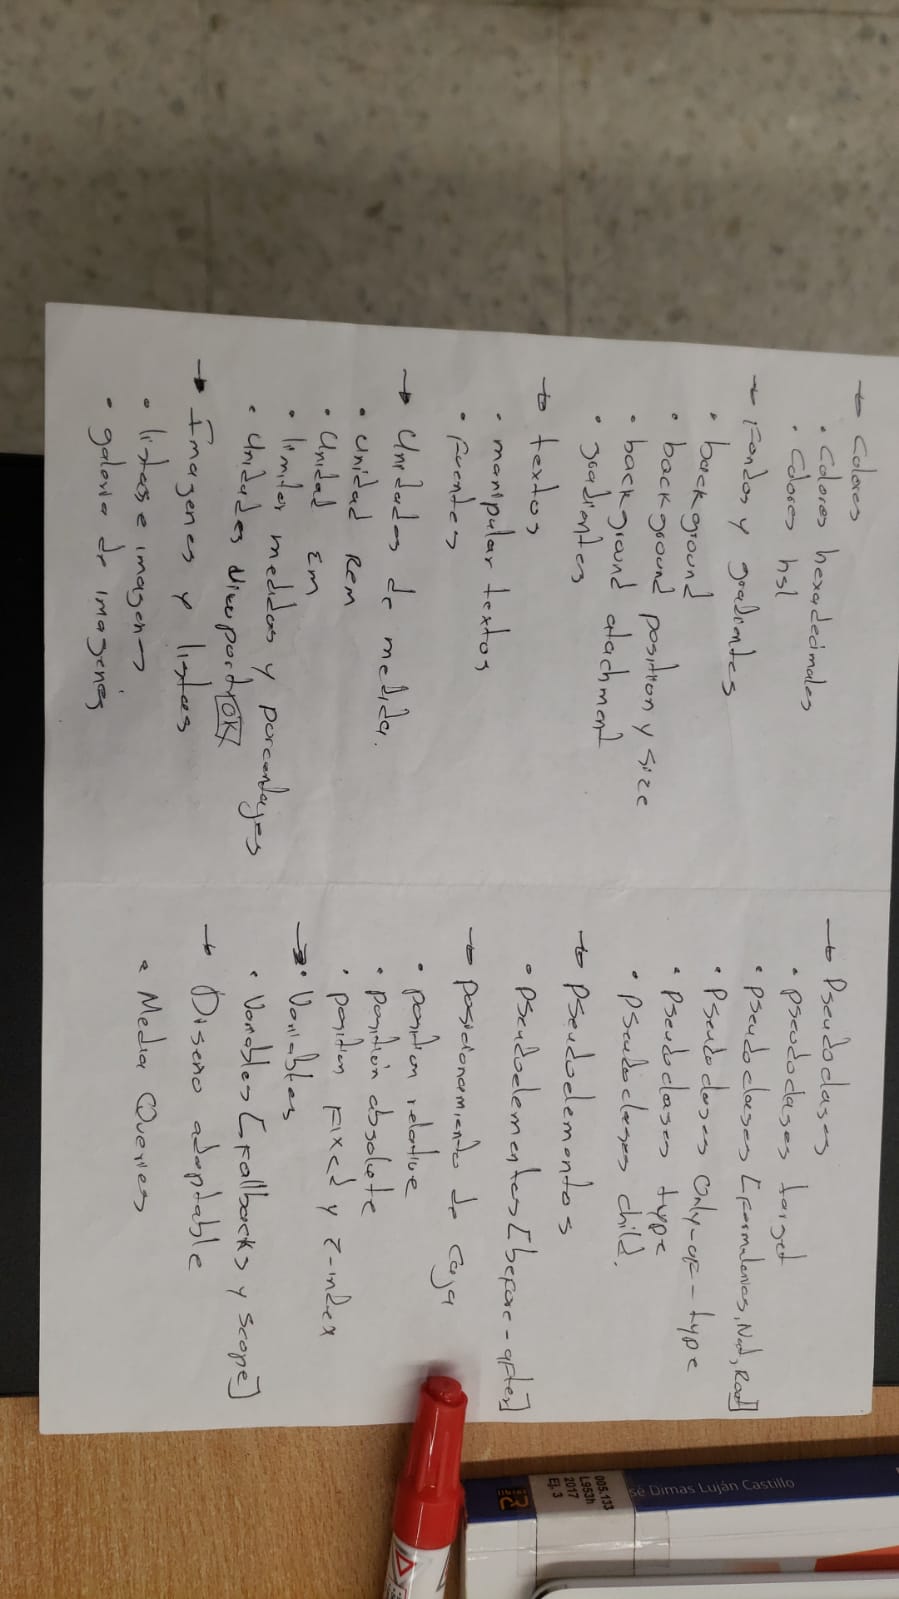 → Colores
• Colores hexadecimales
• Colores hsl
→ Fondos y gradientes
• background
• background position y size
• background atachment
• gradientes
→ textos
• manipular textos
• Fuentes
→ Unidades de medida.
• unidad Rem
• Unidad Em
• limitar medidas y porcentajes
• Unidades Viewport OK
→ Imagenes y listas
• listas e imagenes
• galeria de imagenes
→ Pseudoclases
• pseudoclases target
• pseudoclases [Formularios, Not, Root]
• Pseudoclases Only-of-type
• Pseudoclases type
• Pseudoclases child.
→ Pseudoelementos
• Pseudoelementos [before-after]
→ posicionamiento de Caja
• position relative
• position absolute
• position Fixed y z-index
→ Variables
• Variables [Fallbacks y Scope]
→ Diseno adaptable
• Media Queries
sé Dimas Luján Castillo
005.133
L953h
2017
Ej. 3